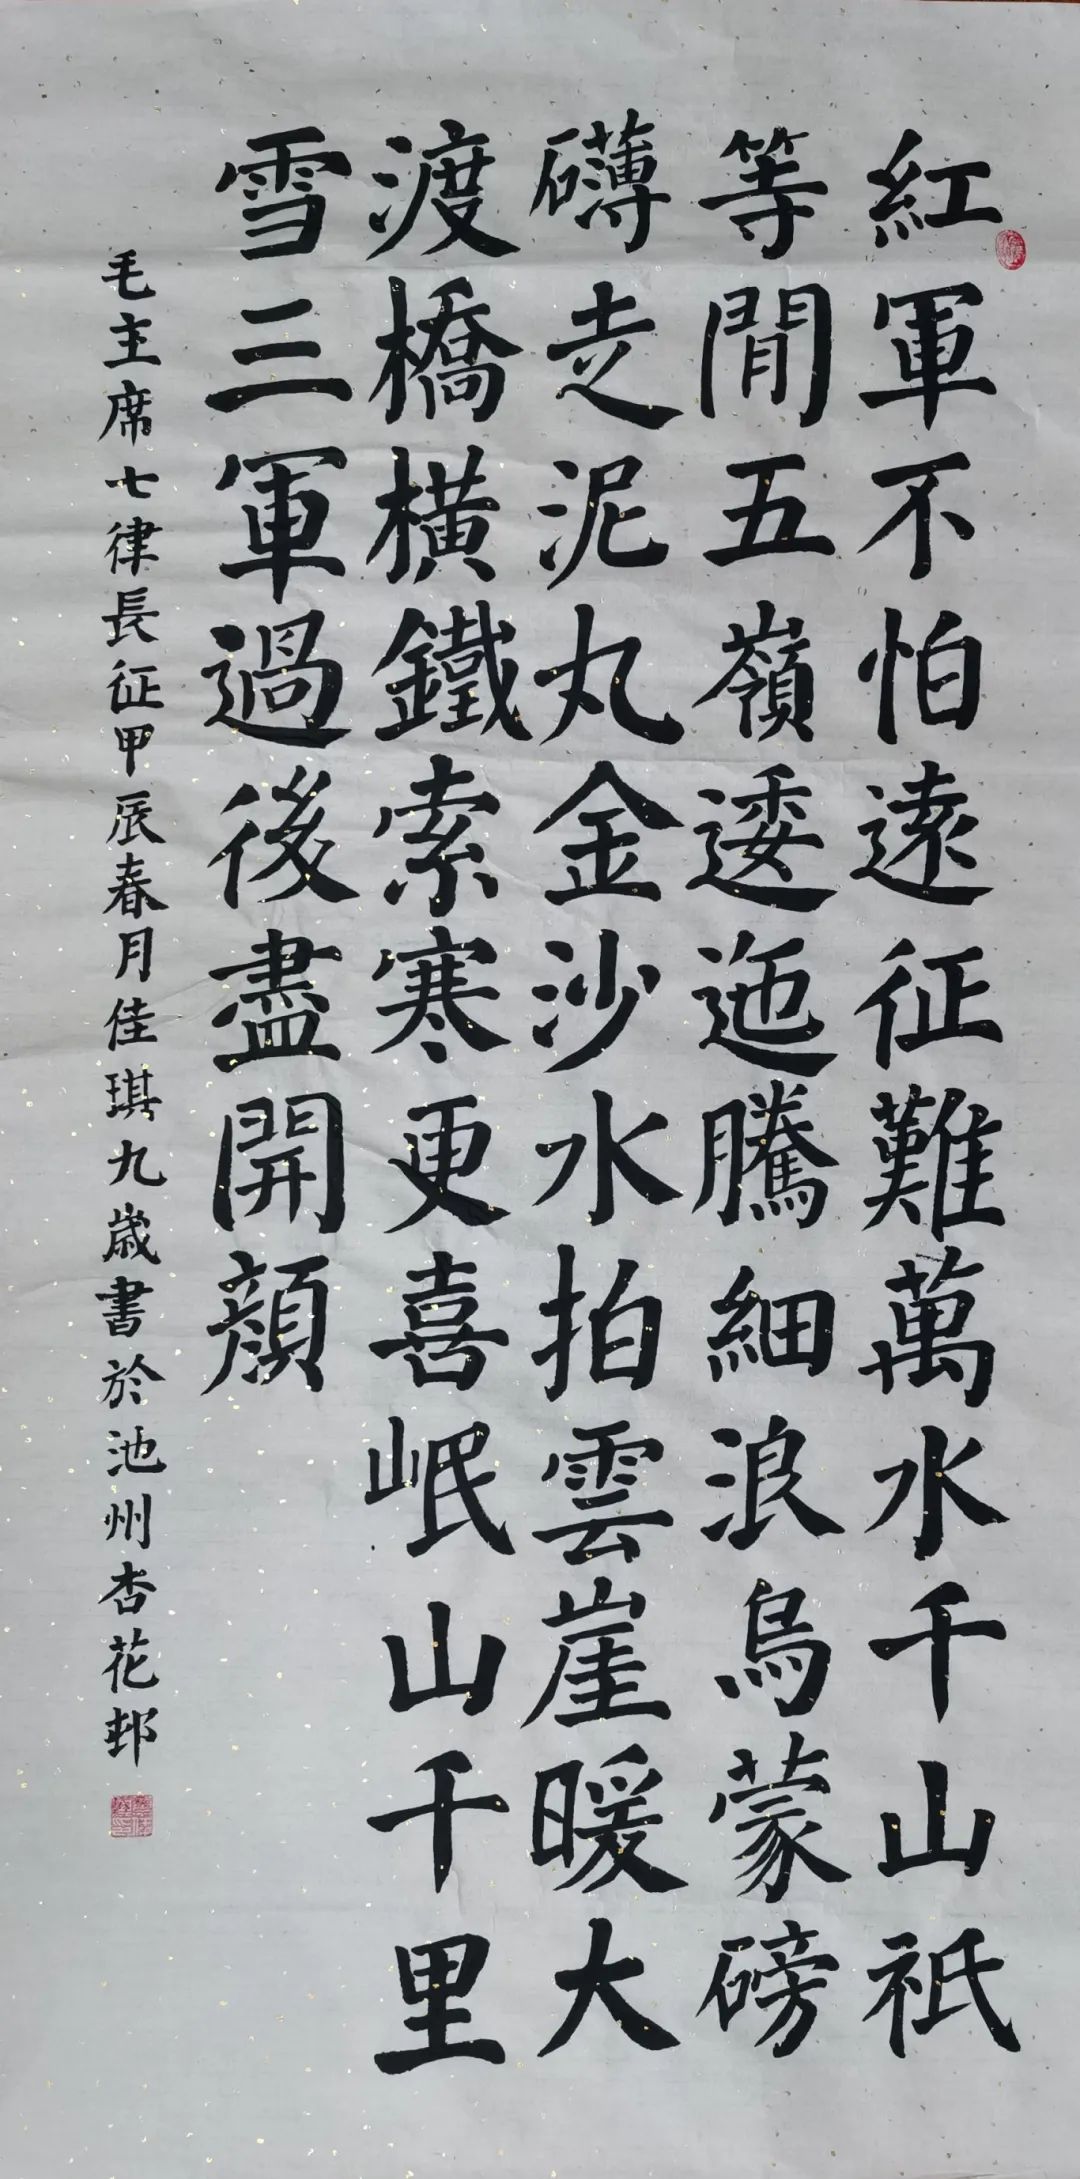 紅軍不怕遠征難萬水千山祇
等閒五嶺逶迤騰細浪烏蒙磅
礴走泥丸金沙水拍雲崖暖大
渡橋橫鐵索寒更喜岷山千里
雪三軍過後盡開顔
毛主席七律長征甲辰春月佳琪九歲書於池州杏花邨